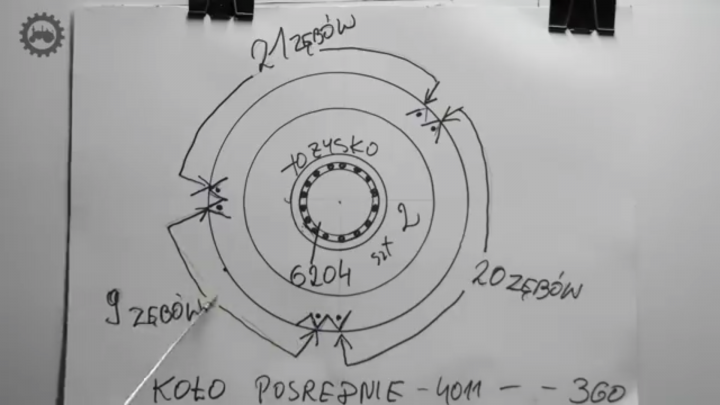 21 ZĘBÓW
ŁOŻYSKO
szt 2
6204
20 ZĘBÓW
9 ZĘBÓW
KOŁO POSREDNIE - 4011 - - 360